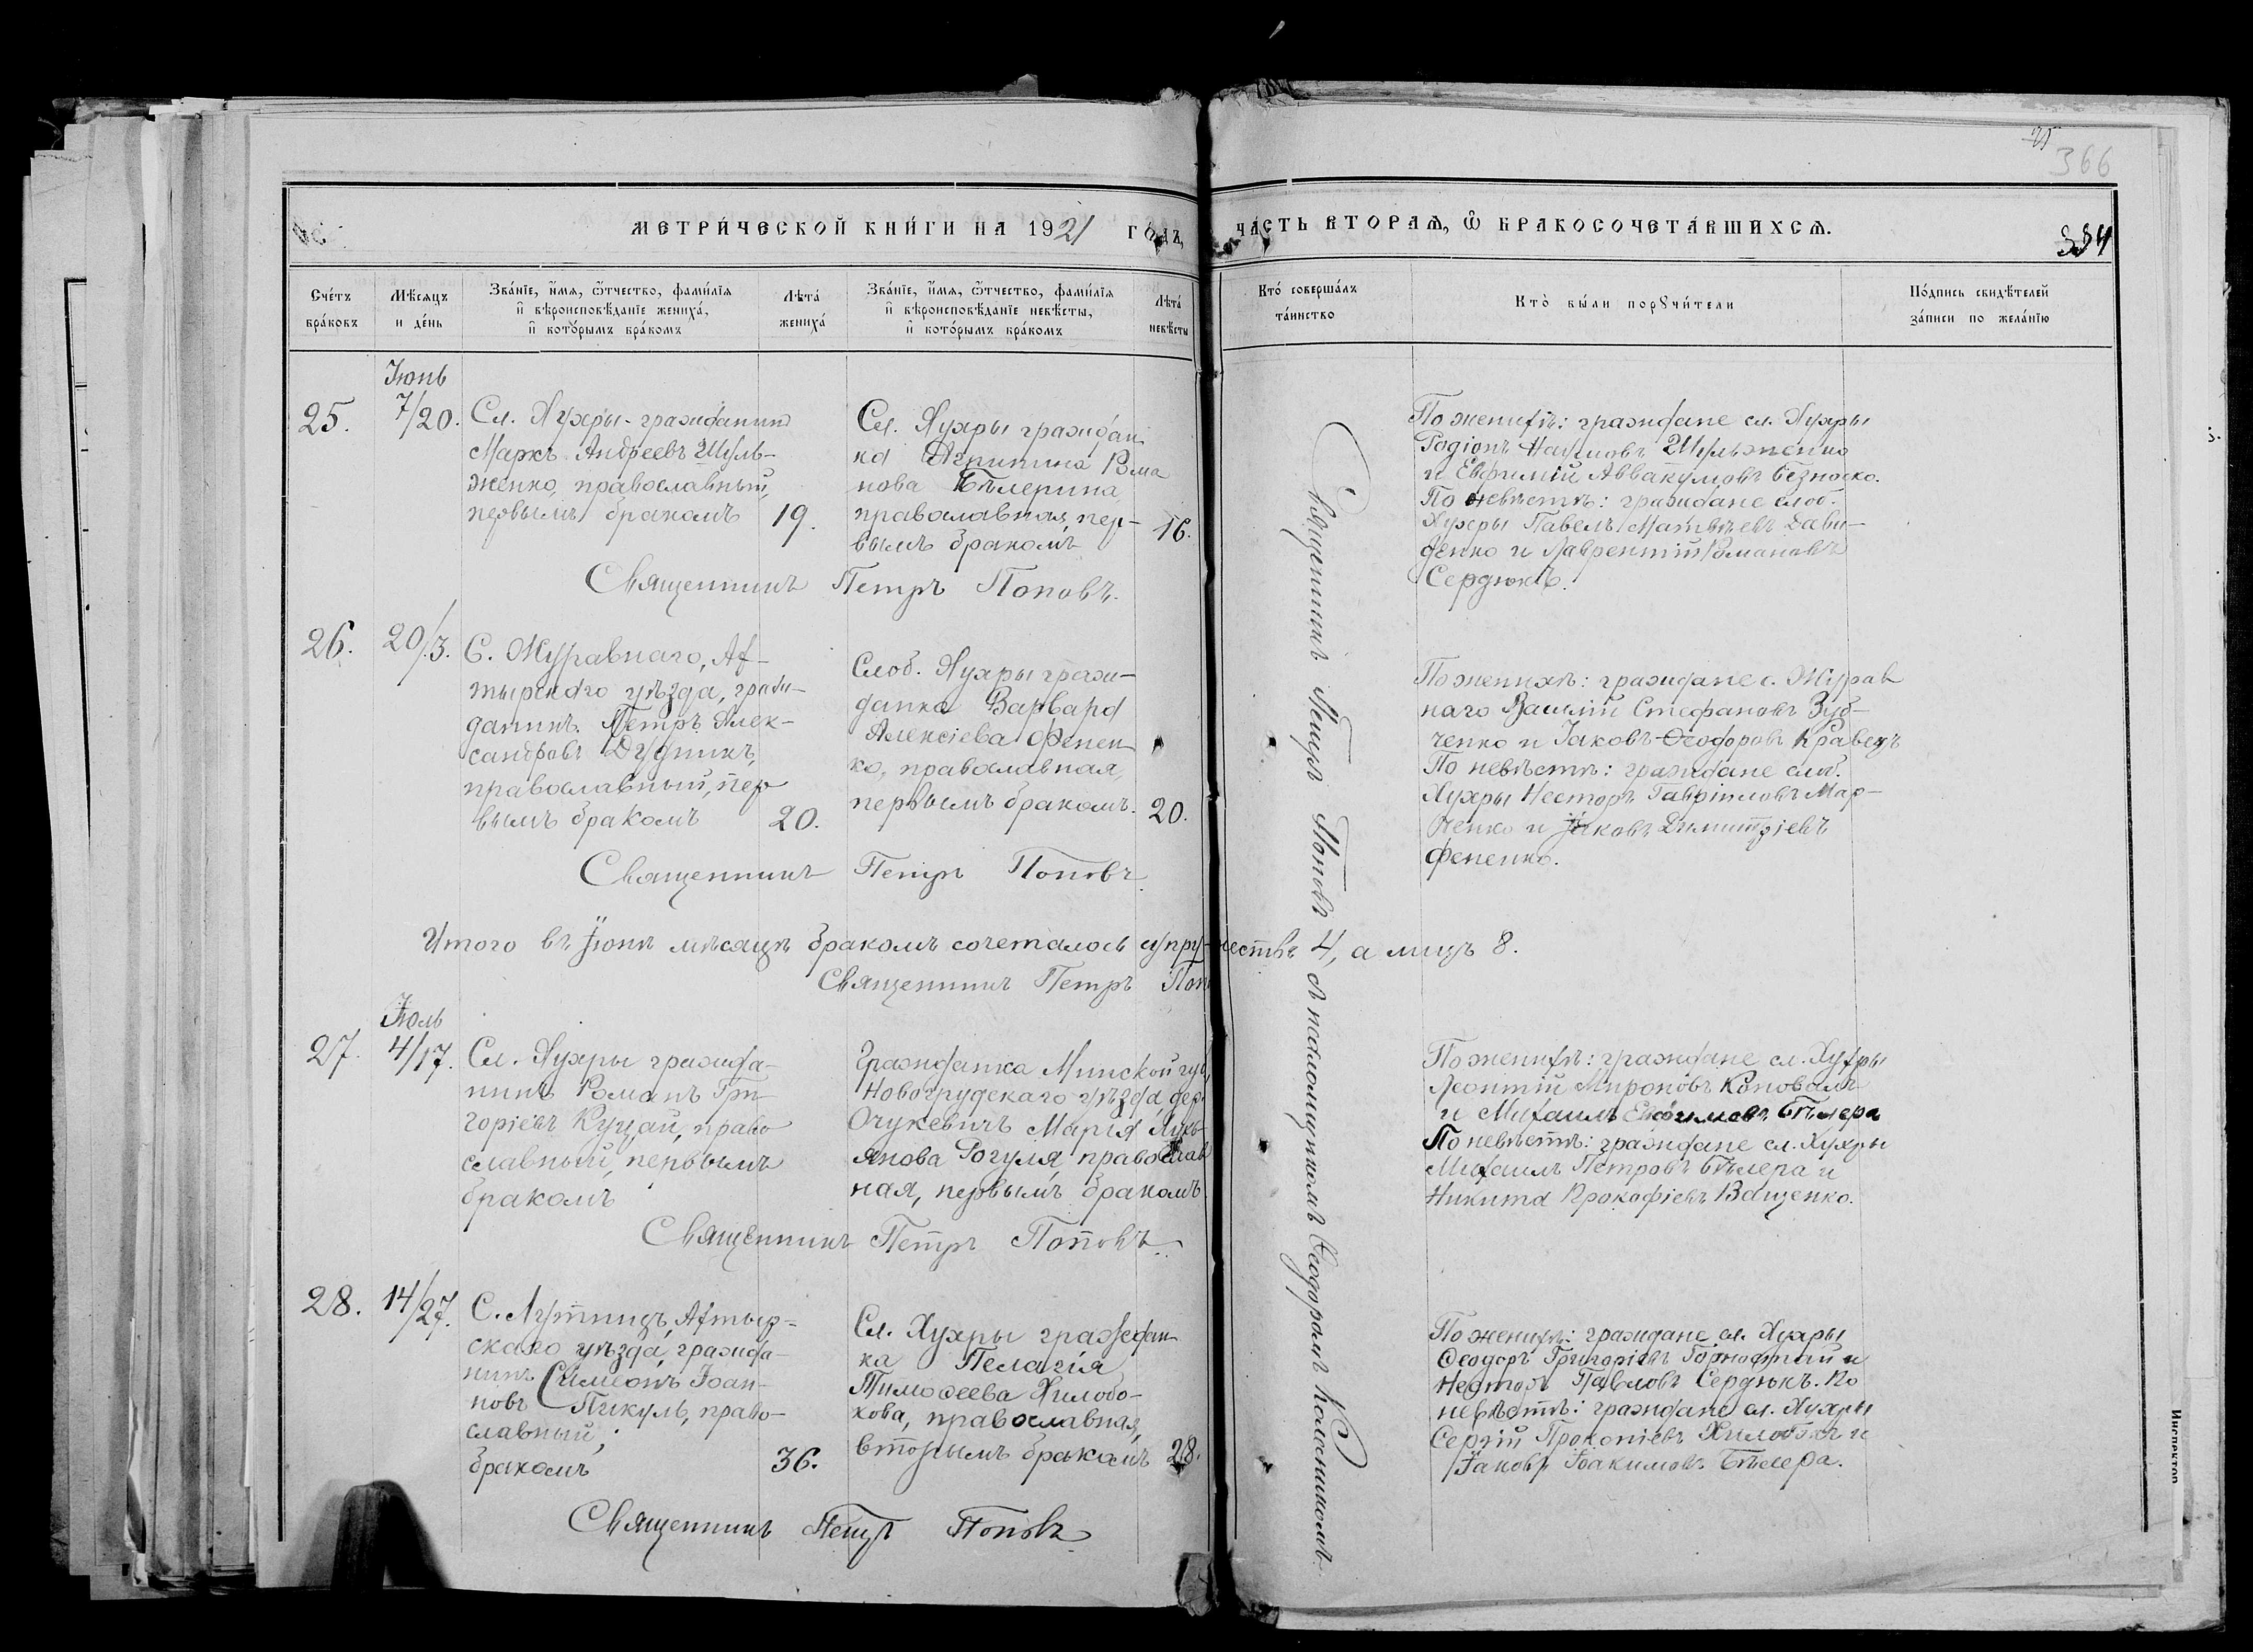 366
МЕТРИ́ЧЕСКОЙ КНИ́ГИ НА 1921 ГОДЪ,
ЧА́СТЬ ВТОРАѦ, Ѿ БРАКОСОЧЕТА́ВШИХСѦ.
334
Сче́тъ бра́ковъ
Мѣ́сяцъ и де́нь
Зва́нїе, и҆́мя, ѻ҆́тчество, фами́лїя
и҆ вѣроисповѣ́данїе жениха́,
и҆ кото́рымъ бра́комъ
Лѣта́ жениха́
Зва́нїе, и҆́мя, ѻ҆́тчество, фами́лїя
и҆ вѣроисповѣ́данїе невѣ́сты,
и҆ кото́рымъ бра́комъ
Лѣта́ невѣ́сты
Кто́ соверша́лъ та́инство
Кто̀ бы́ли порꙋчи́тели
По́дпись свидѣ́телей
за́писи по жела́нїю
Іюнь
25.
7/20.
Сл. Хухры гражданинъ
Маркъ Андреевъ Шуль-
женко, православный,
первымъ бракомъ
19.
Сл. Хухры граждан
ка Агрипина Рома
нова Бѣлерина
православная, пер-
вымъ бракомъ
16.
По женихѣ: граждане сл. Хухры
Родіонъ Наумовъ Шульженко
и Евфимій Аввакумовъ Безноско.
По невѣстѣ: граждане слоб.
Хухры Павелъ Матвѣевъ Дави-
денко и Лаврентій Романовъ
Сердюкъ.
Священникъ Петръ Поповъ.
26.
20/3.
С. Журавнаго, Ах-
тырскаго уѣзда, граж-
данинъ Петръ Алек-
сандровъ Дудникъ,
православный, пер
вымъ бракомъ
20.
Слоб. Хухры граж-
данка Варвара
Алексіева Фенен
ко, православная,
первымъ бракомъ.
20.
По женихѣ: граждане с. Журав
наго Василій Стефановъ Зуб-
ченко и Іаковъ Ѳеодоровъ Кравецъ
По невѣстѣ: граждане слоб.
Хухры Несторъ Гавріиловъ Мар-
ченко и Іаковъ Димитріевъ
Фененко.
Священникъ Петръ Поповъ.
Итого въ Іюнѣ мѣсяцѣ бракомъ сочеталось супружествъ 4, а лицъ 8.
Священникъ Петръ Поп
Священникъ Петръ Поповъ съ псаломщикомъ Ѳеодоромъ Колесникомъ.
Іюль
27.
4/17.
Сл. Хухры гражда-
нинъ Романъ Гри-
горіевъ Куцай, право
славный, первымъ
бракомъ
Гражданка Минской губ,
Новогрудскаго уѣзда, дер
Очукевичъ Марія Лукь-
янова Рогуля, православ
ная, первымъ бракомъ
По женихѣ: граждане сл. Хухры
Леонтій Мироновъ Коновалъ
и Михаилъ Евфимовъ Бѣлера
По невѣстѣ: граждане сл. Хухры
Михаилъ Петровъ Бѣлера и
Никита Прокофіевъ Ващенко.
Священникъ Петръ Поповъ.
28.
14/27.
С. Лутищъ, Ахтыр-
скаго уѣзда, гражда-
нинъ Симеонъ Іоан-
новъ Пикуль, право-
славный,
бракомъ
36.
Сл. Хухры граждан-
ка Пелагія
Тимоѳеева Хилобо-
кова, православная,
вторымъ бракомъ
28.
По женихѣ: граждане сл. Хухры
Ѳеодоръ Григоріевъ Горностай и
Несторъ Павловъ Сердюкъ. По
невѣстѣ: граждане сл. Хухры
Сергій Прокопіевъ Хилобокъ и
Іаковъ Іоакимовъ Бѣлера.
Священникъ Петръ Поповъ
Инспектор